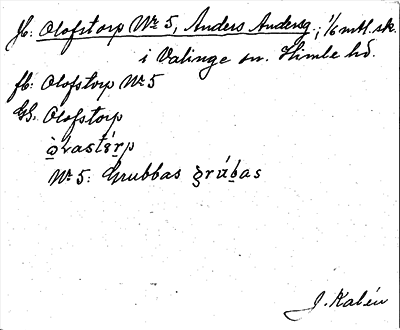 Jb: Olofstorp Nr 5, Anders Andersg., 1/6 mtl. sk.
i Valinge sn. Himle hd.
fb: Olofstorp Nr 5
GS. Olofstorp
Nr 5: Grubbas
J. Kalén